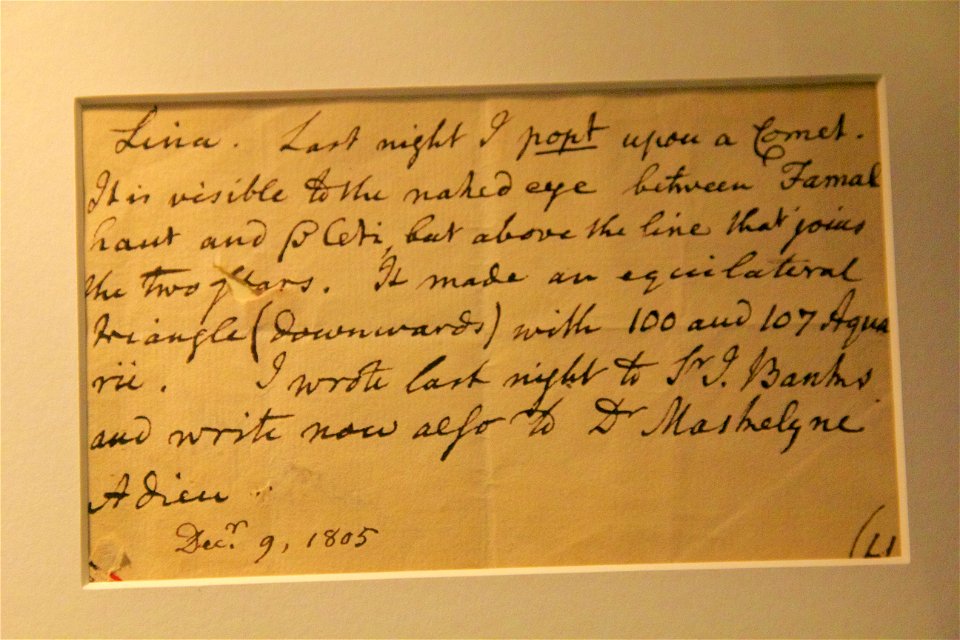 Lina. Last night I popt upon a Comet.
It is visible to the naked eye between Famal
haut and β Ceti, but above the line that joins
the two stars. It made an equilateral
triangle (downwards) with 100 and 107 Aqua
rii. I wrote last night to Sr J. Banks
and write now also to Dr Maskelyne
Adieu
Decr. 9, 1805